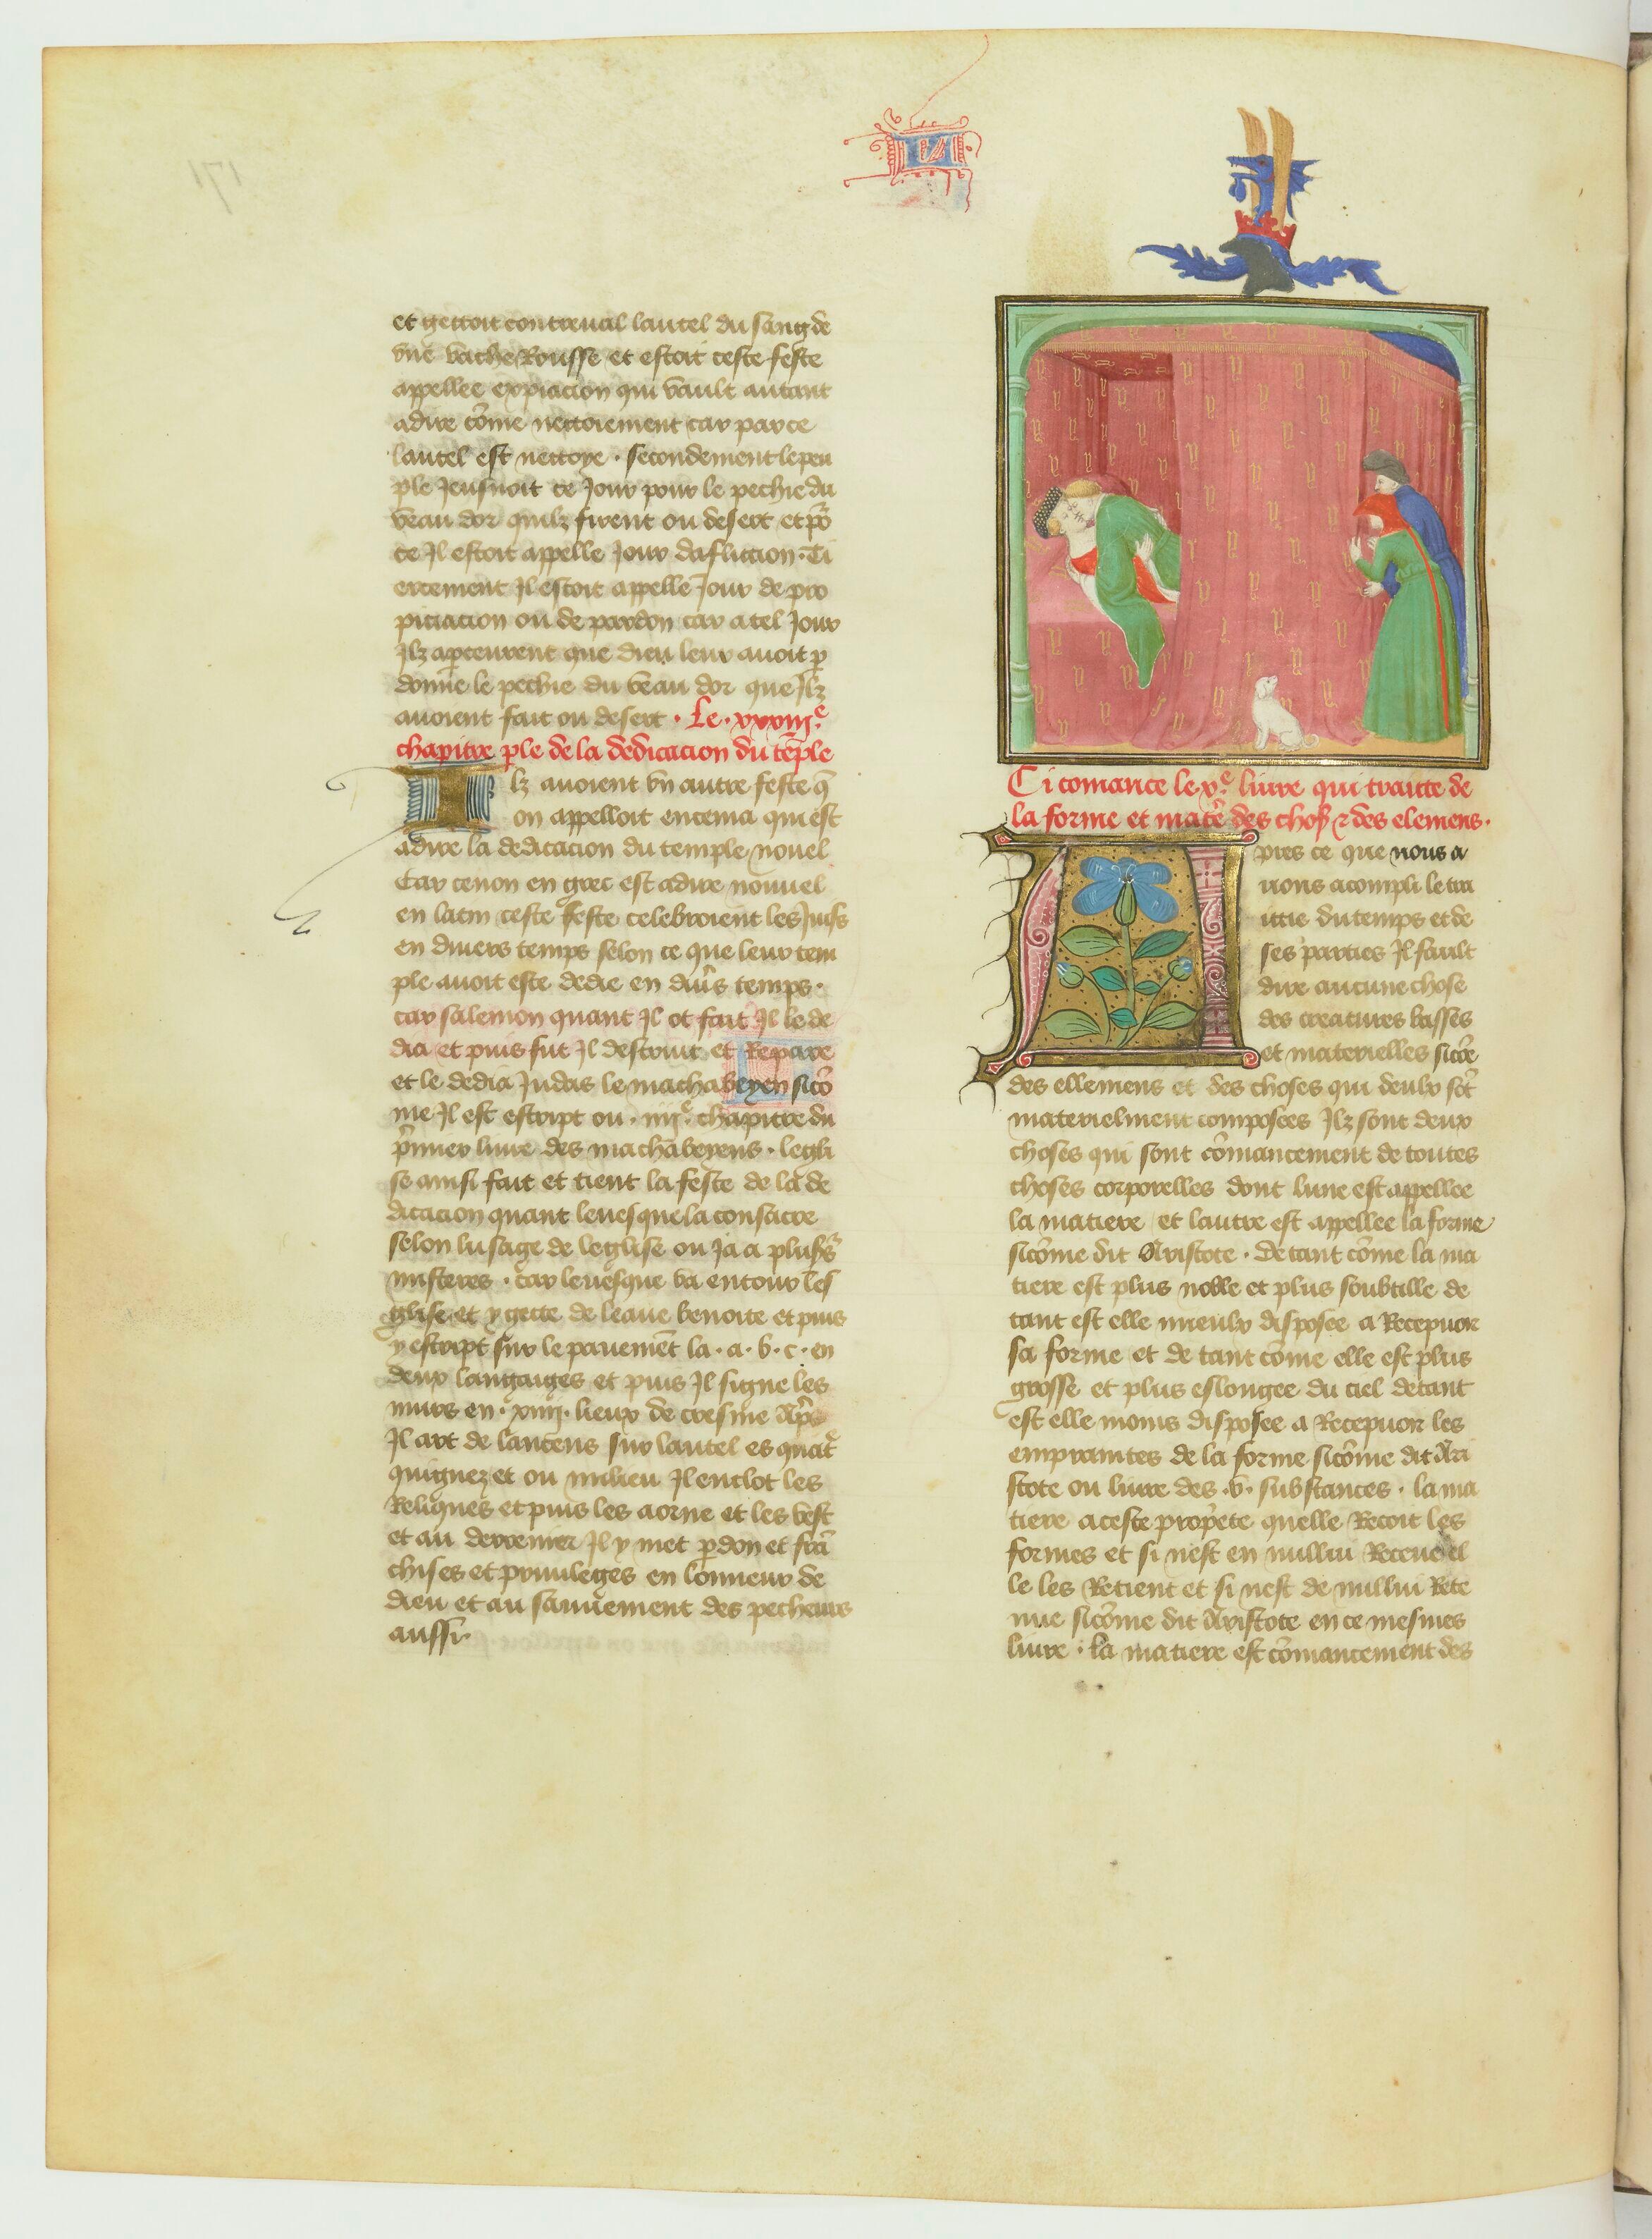 et gettoit contreual lautel du sang de
vne vache Rousse et estoit ceste feste
appellee expiacion qui vault autant
adire cõme nettoiement car par ce
lautel est nettoye · secondement le peu
ple Jeusnoit ce Jour pour le pechie du
veau dor quilz firent ou desert et po᷑
ce Jl estoit appelle Jour daflicion · Ti
ercement Jl estoit appelle Jour de pro
piciacion ou de pardon car a tel Jour
Jlz aperceurent que dieu leur auoit p
donne le pechie du veau dor que Jlz
auoient fait ou desert · Le · xxxiiiᵉ
chapitre ple de la dedicacion du tẽple
Ilz auoient vn autre feste q̃
on appelloit encenia qui est
adire la dedicacion du temple nouel
Car cenon en grec est adire nouuel
en latin ceste feste celebroient les Juifs
en diuers temps selon ce que leur tem
ple auoit este dedie en diu̾s temps ·
car salemon quant Jl ot fait Jl le de
dia et puis fut Jl destruit et Repare
et le dedia Judas le machabeyen sicõ
me Jl est escript ou · iiiiᵉ · chapitre du
p̃mier liure des machabeyens · legli
se ainsi fait et tient la feste de la de
dicacion quant leuesque la consacre
selon lusage de leglise ou Ja a plus̃s
misteres · car leuesque va entour les
glise et y gette de leaue benoite et puis
y escript sur le pauemẽt la · a · b · c · en
deux langaiges et puis Jl signe les
murs en · xiiii · lieux de cresme Ap̃s
Jl art de lancens sur lautel es quat̃
quignez et ou milieu Jl enclot les
Reliques et puis les aorne et les vest
et au derrenier Jl y met pdon et frã
chises et priuileges en lonneur de
dieu et au sauuement des pecheurs
aussi ·
Ci comance le xᵉ liure qui traicte de
la forme et mate᷑ des chos̃ ⁊ des elemens ·
Apres ce que nous a
uons acompli le tra
itie du temps et de
ses parties Jl fault
dire aucune chose
des creatures basses
et materielles sicõe
des ellemens et des choses qui deulx sõt
materielment composees Jlz sont deux
choses qui sont cõmancement de toutes
choses corporelles dont lune est appellee
la matiere et lautre est appellee la forme
sicõme dit Aristote · de tant cõme la ma
tiere est plus noble et plus soubtille de
tant est elle mieulx disposee a Recepuoir
sa forme et de tant come elle est plus
grosse et plus eslongee du ciel de tant
est elle moins disposee a Recepuoir les
empraintes de la forme sicõme dit Ari
stote ou liure des · v · substances · la ma
tiere a ceste prop̃ete quelle Recoit les
formes et si nest en nullui Receue el
le les Retient et si nest de nullui Rete
nue sicõme dit Aristote en ce mesmes
liure · la matiere est cõmancement des